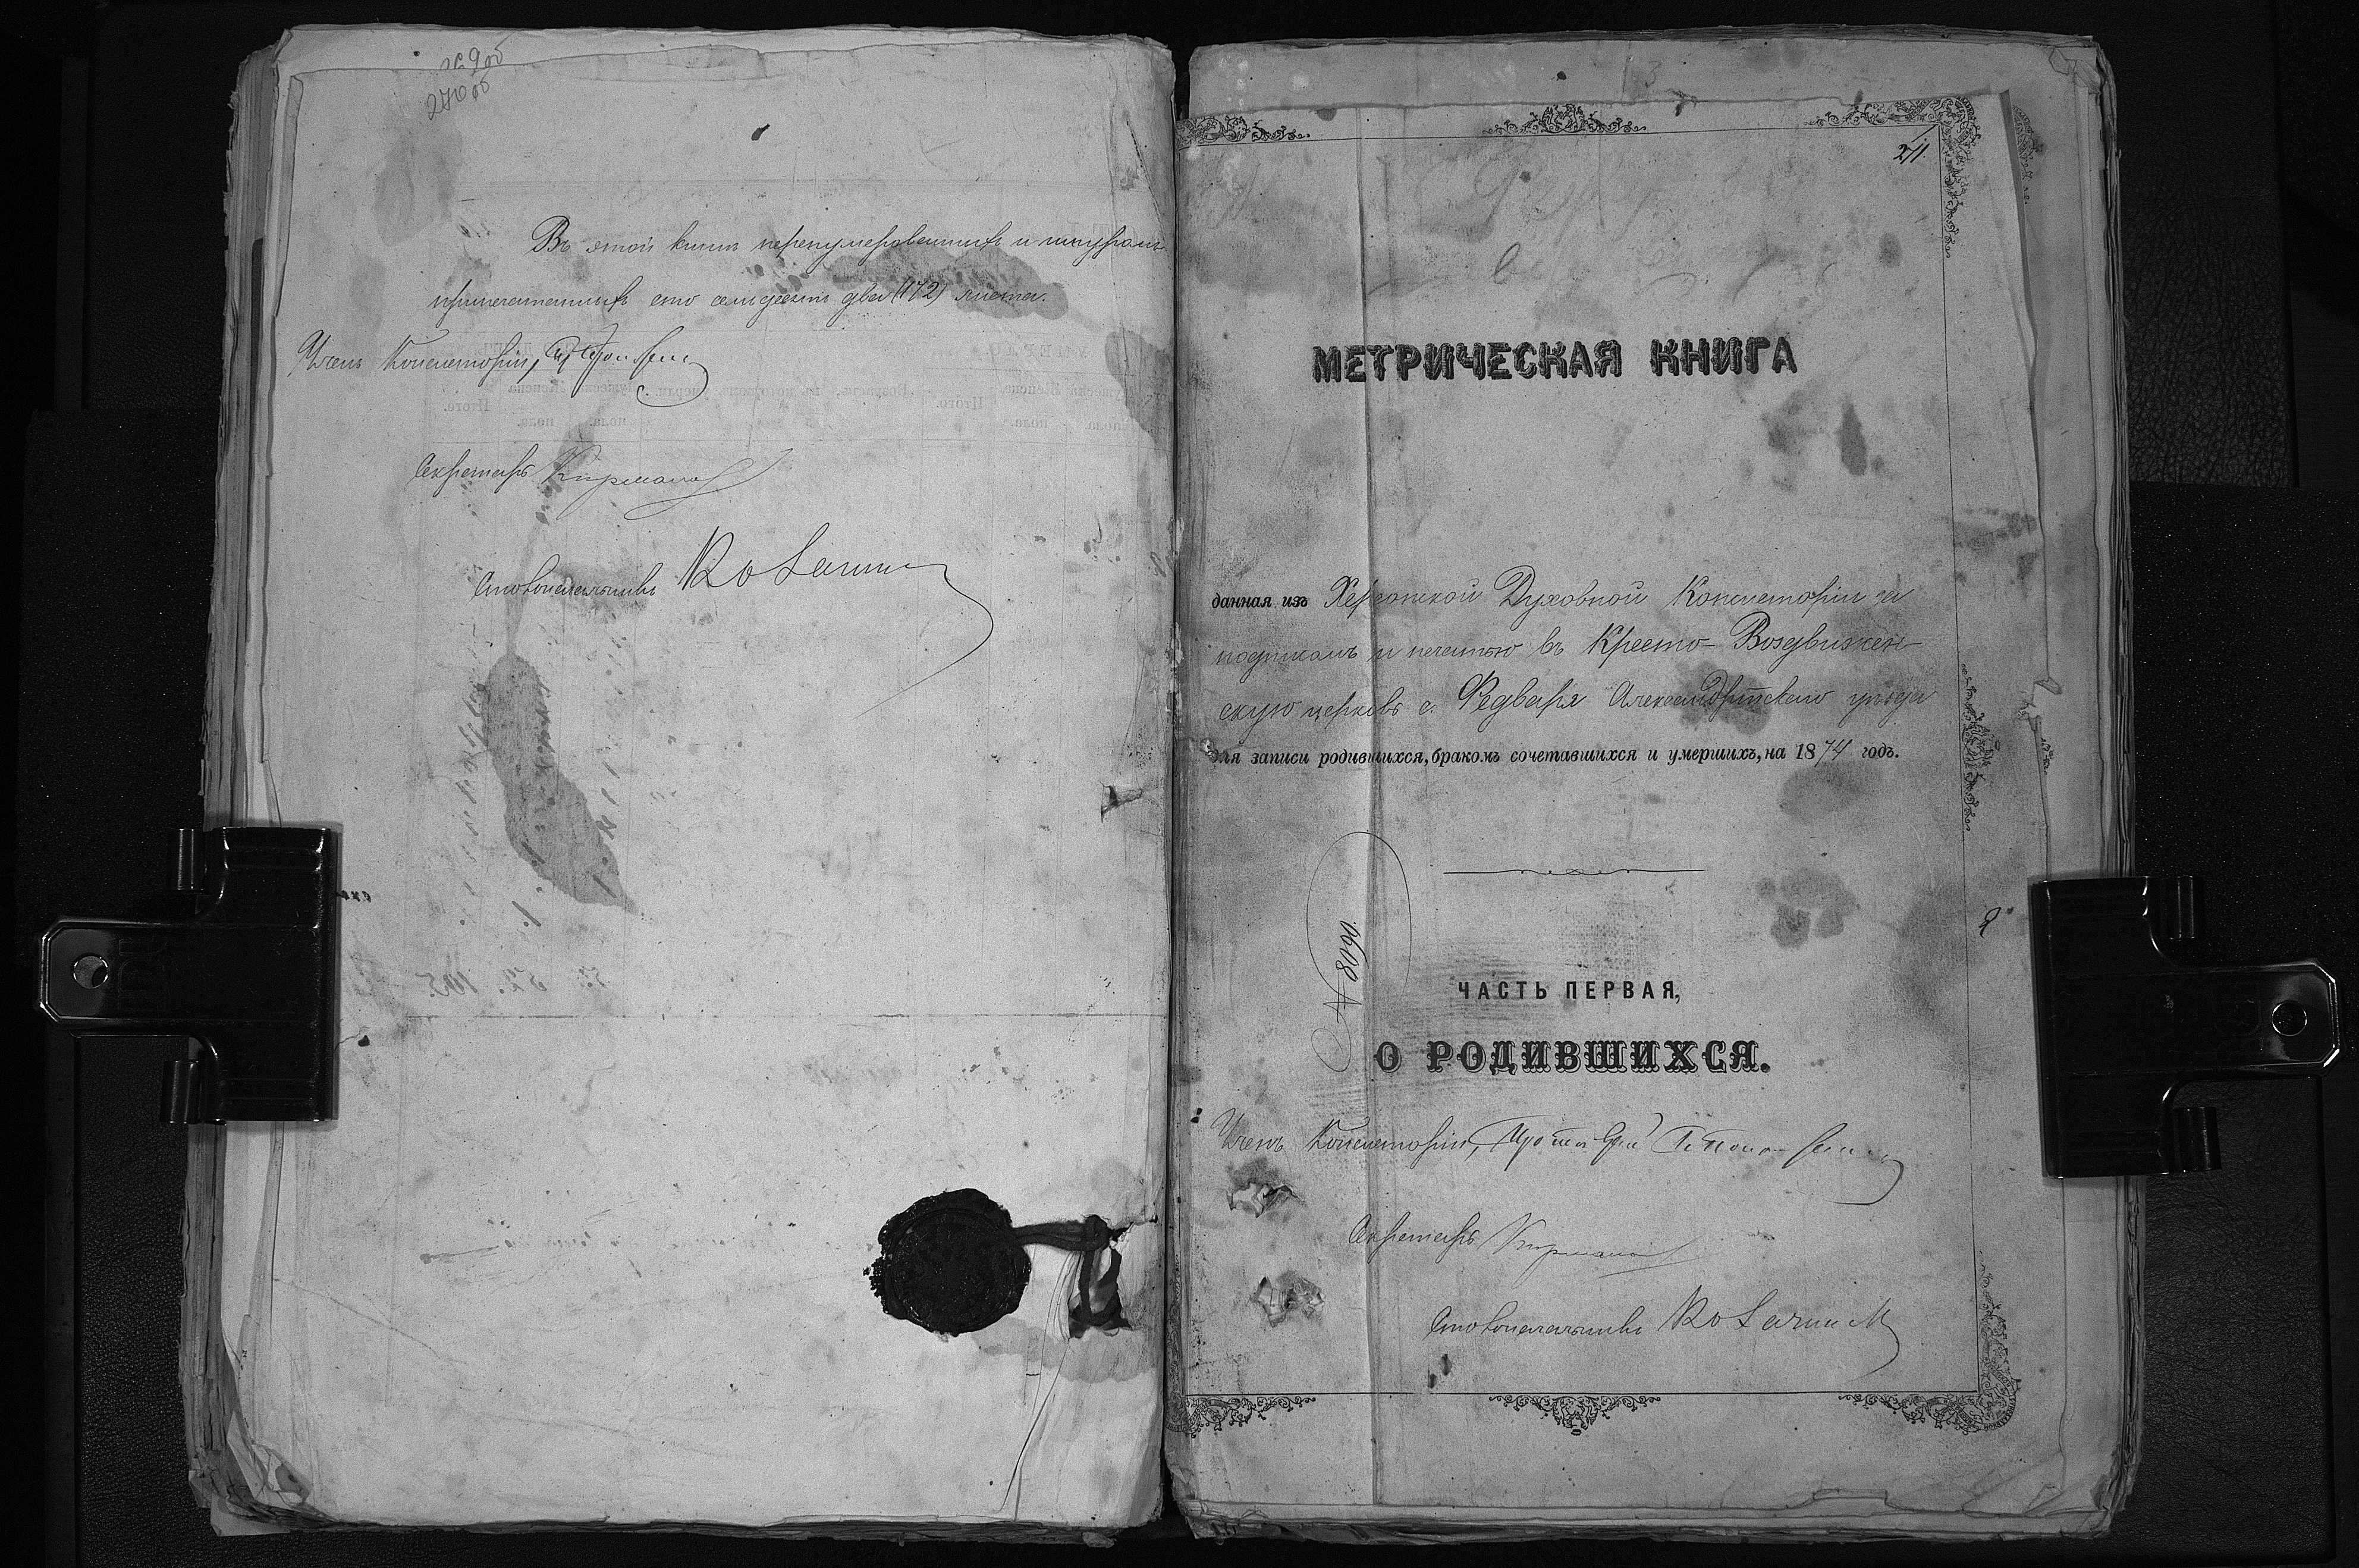 270об
Въ этой книгѣ перенумерованныхъ и шнуромъ
припечатанныхъ сто семьдесятъ два (172) листа.
Членъ Консисторіи,
Секретарь
Столоначальникъ
271
МЕТРИЧЕСКАЯ КНИГА
данная изъ Херсонской Духовной Консисторіи за
подписомъ и печатью въ Кресто-Воздвижен-
скую церковь с. Федваря Александрійскаго уѣзда
для записи родившихся, бракомъ сочетавшихся и умершихъ, на 1874 годъ.
№ 8090
ЧАСТЬ ПЕРВАЯ,
О РОДИВШИХСЯ.
Членъ Консисторіи,
Секретарь
Столоначальникъ